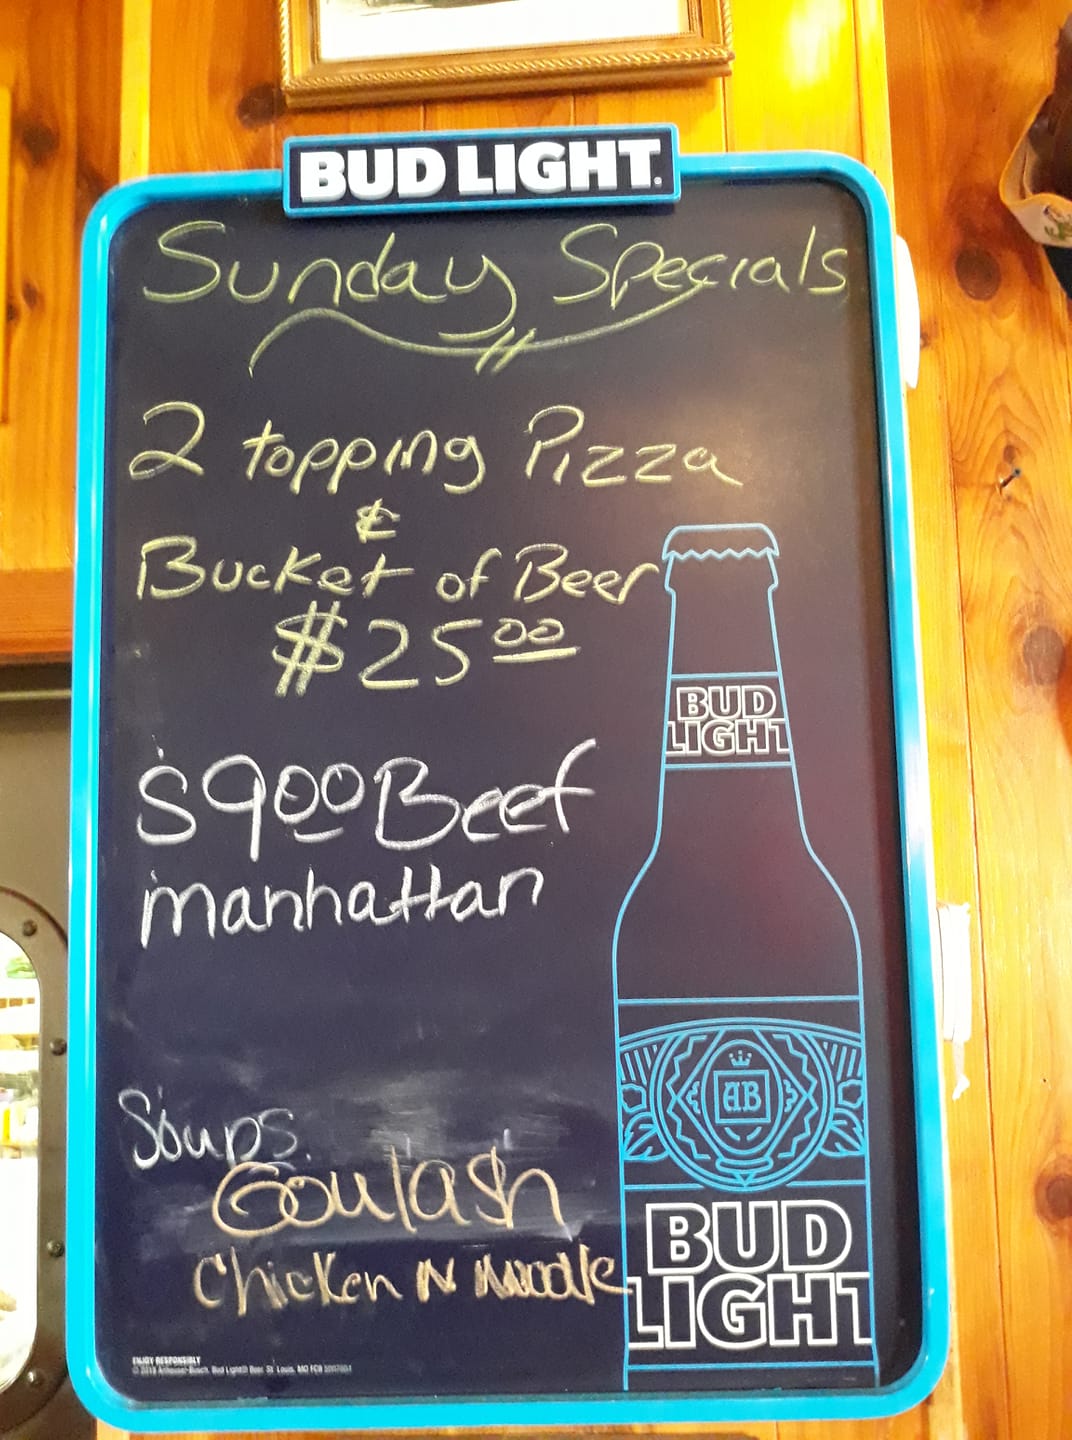 BUD LIGHT.
Sunday Specials
2 topping Pizza
&
Bucket of Beer
$25.00
$9.00 Beef
manhattan
Soups.
Goulash
Chicken N Noodle
BUD
LIGHT
AB
BUD
LIGHT
ENJOY RESPONSIBLY
© 2018 Anheuser-Busch, Bud Light® Beer, St. Louis, MO